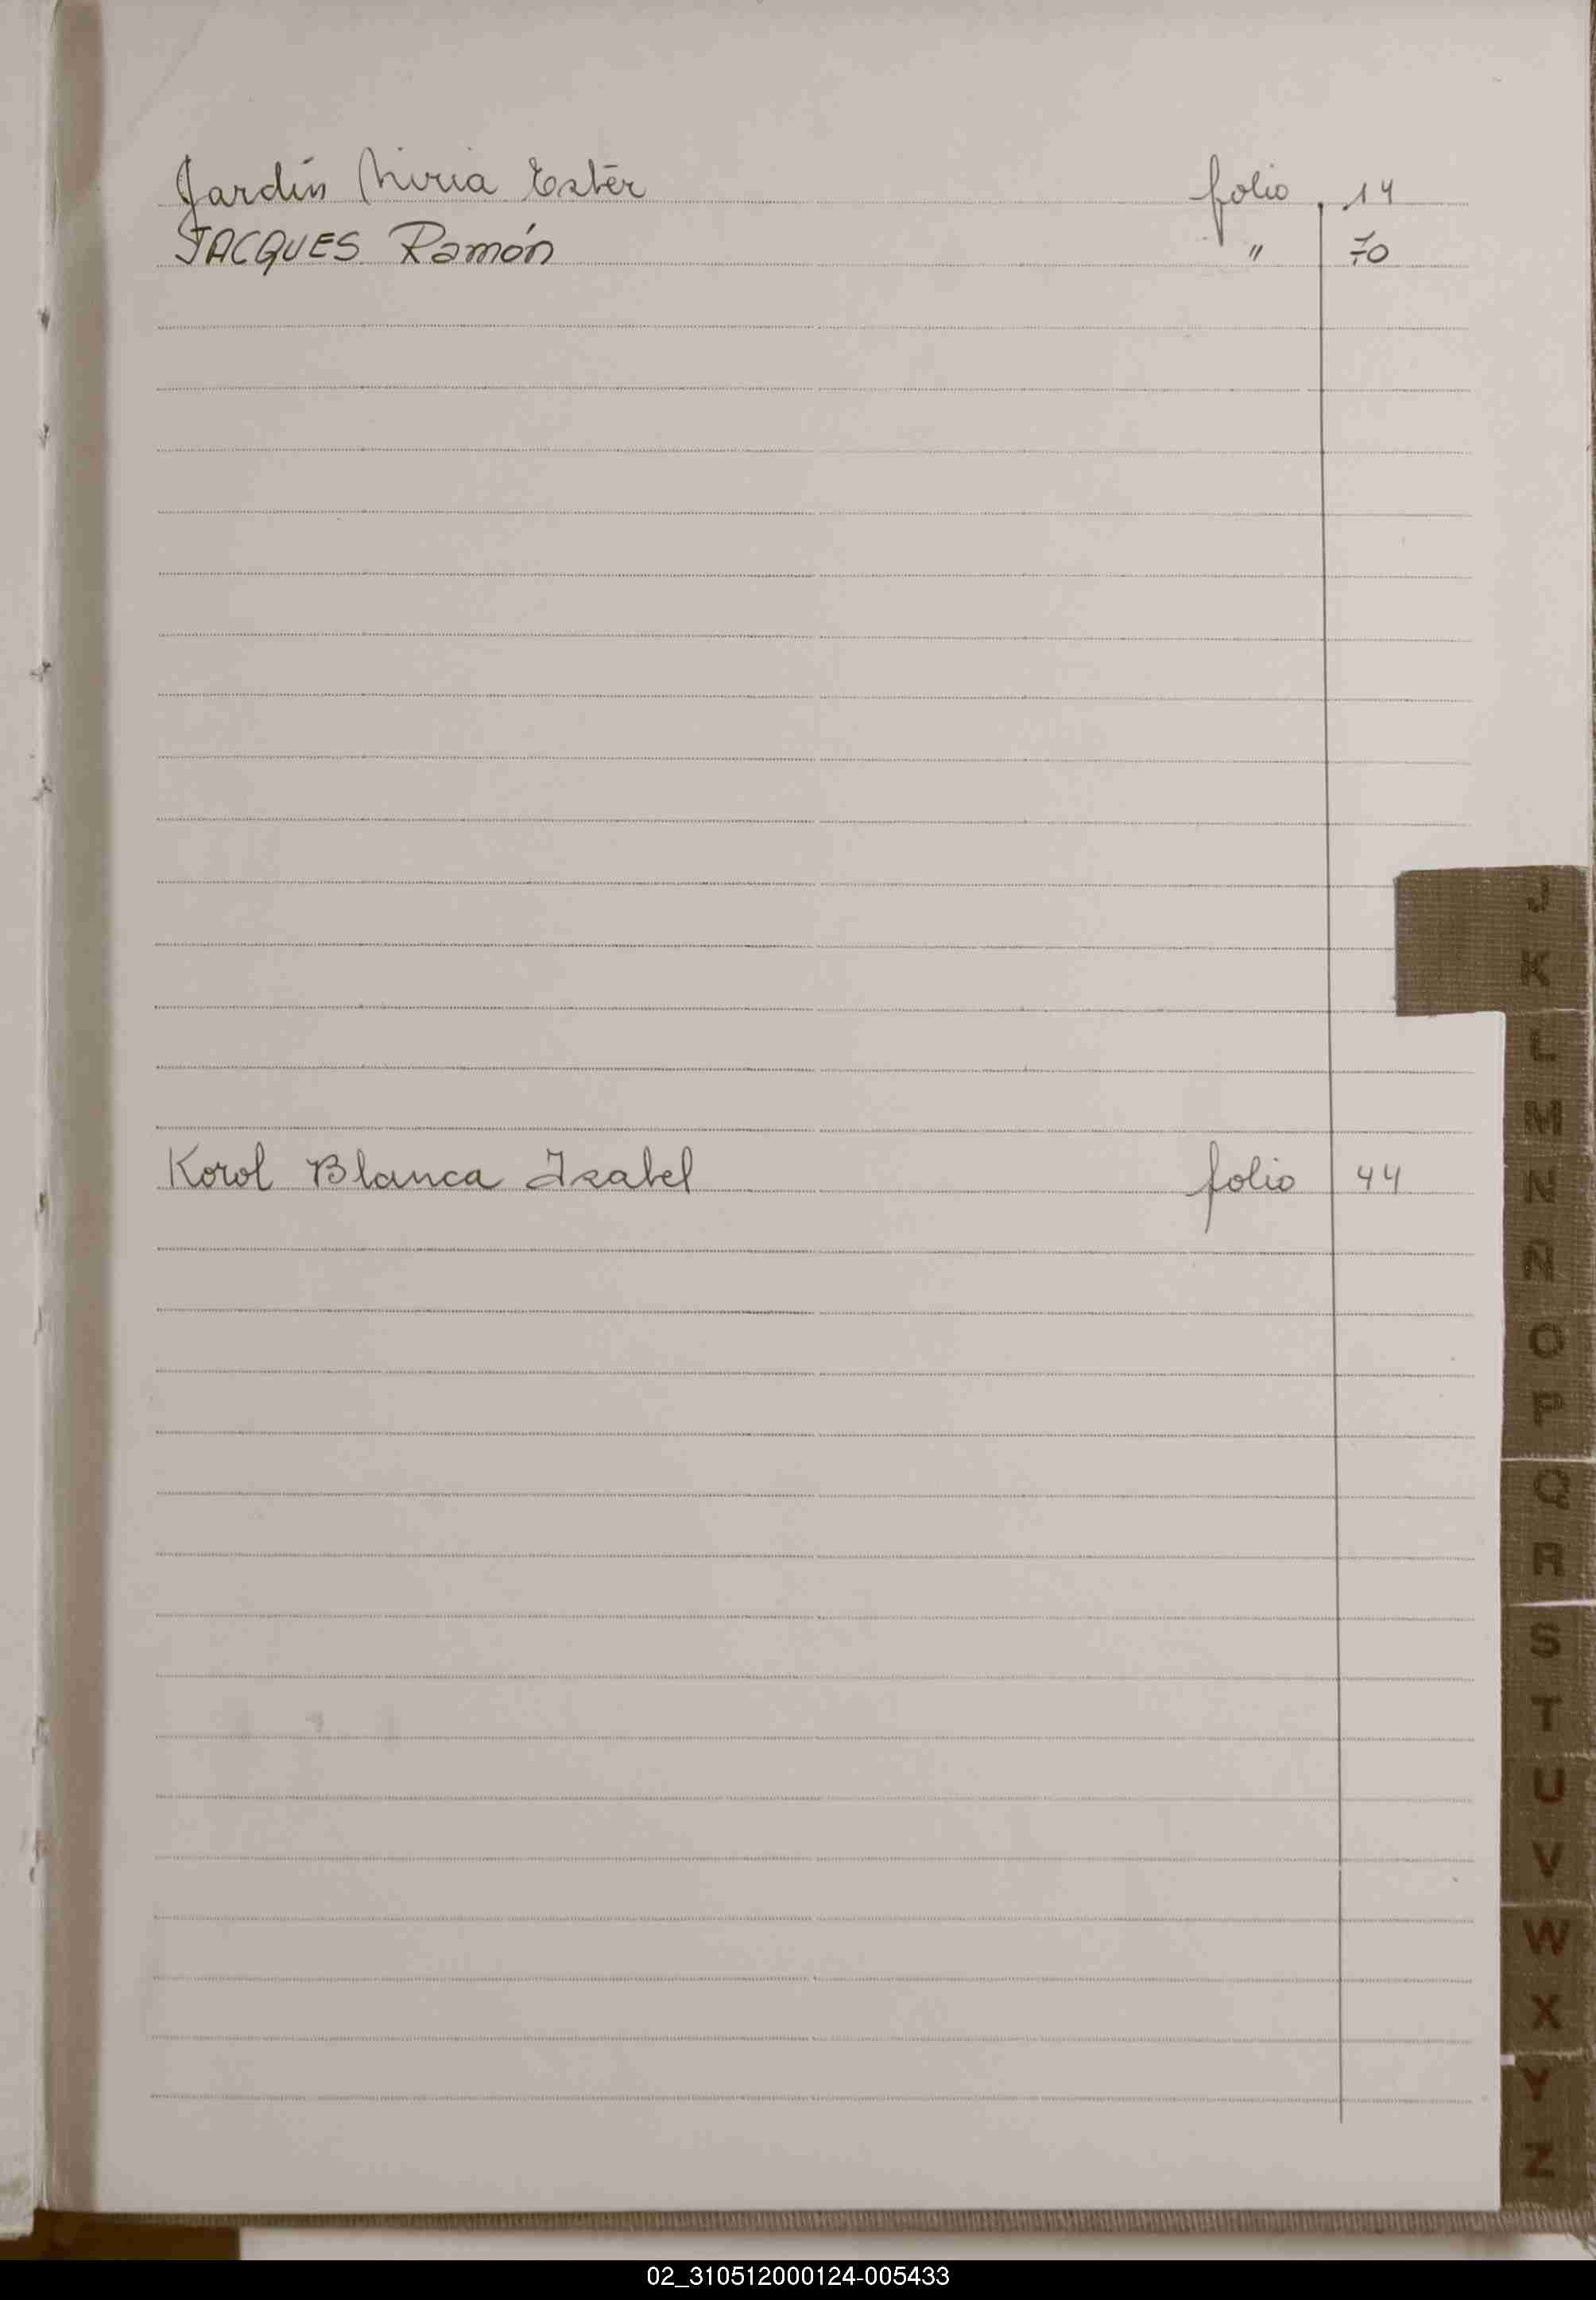 Jardín Miria Estér folio 14
JACQUES Ramón " 70
Korol Blanca Isabel folio 44
J
K
L
M
N
Ñ
O
P
Q
R
S
T
U
V
W
X
Y
Z
02_310512000124-005433